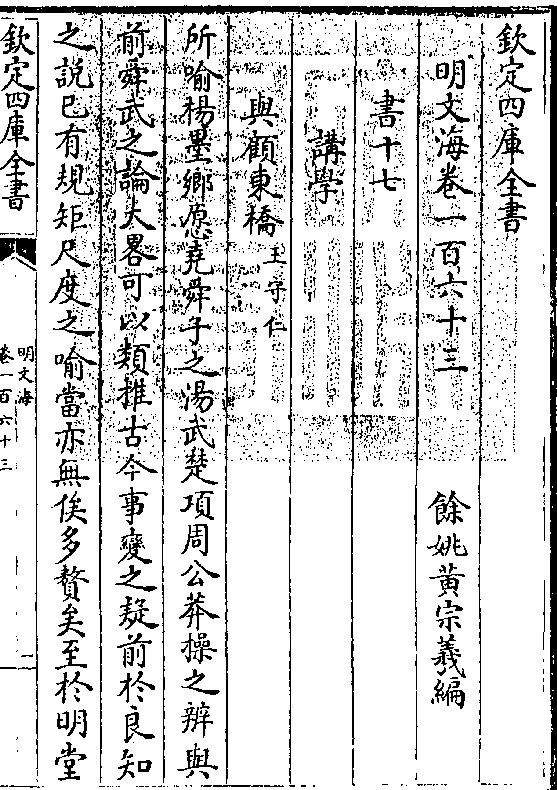 欽定四庫全書
明文海卷一百六十三
餘姚黄宗羲編
書十七
講學
與顧東橋王守仁
所喻楊墨鄉愿堯舜子之湯武楚項周公莽操之辨與
前舜武之論大畧可以類推古今事變之疑前於良知
之說已有規矩尺度之喻當亦無俟多贅矣至於明堂
欽定四庫全書
明文海
卷一百六十三
一